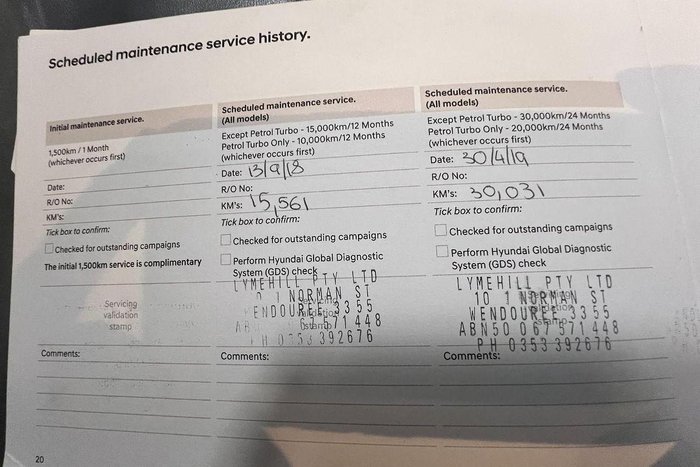 Scheduled maintenance service history.
Initial maintenance service.
1,500km / 1 Month
(whichever occurs first)
Date:
R/O No:
KM's:
Tick box to confirm:
Checked for outstanding campaigns
The initial 1,500km service is complimentary
Servicing
validation
stamp
Comments:
Scheduled maintenance service.
(All models)
Except Petrol Turbo - 15,000km/12 Months
Petrol Turbo Only - 10,000km/12 Months
(whichever occurs first)
Date: 13/9/18
R/O No:
KM's: 15,561
Tick box to confirm:
Checked for outstanding campaigns
Perform Hyundai Global Diagnostic
System (GDS) check
LYMEHILL PTY LTD
1 NORMAN ST
ENDOUREE 3355
671 448
0353 392676
Comments:
Scheduled maintenance service.
(All models)
Except Petrol Turbo - 30,000km/24 Months
Petrol Turbo Only - 20,000km/24 Months
(whichever occurs first)
Date: 30/4/19
R/O No:
KM's: 30,031
Tick box to confirm:
Checked for outstanding campaigns
Perform Hyundai Global Diagnostic
System (GDS) check
LYMEHILL PTY LTD
10 1 NORMAN ST
WENDOUREE 3355
ABN50 067 571 448
PH 0353 392676
Comments:
20